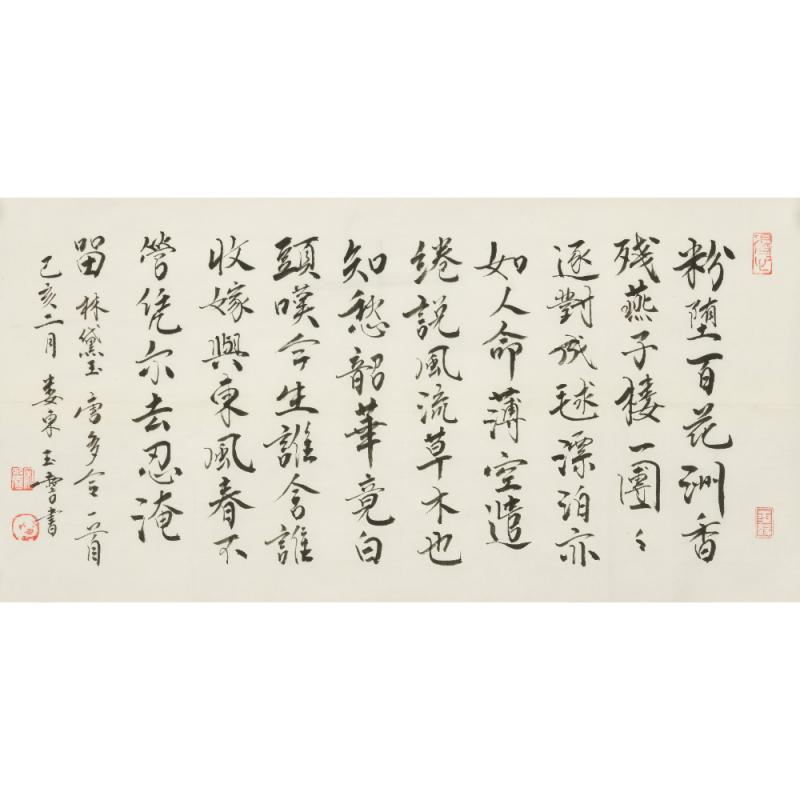 粉堕百花洲香
残燕子楼一團々
逐對成毬漂泊亦
如人命薄空遣
綣說風流草木也
知愁韶華竟白
頭嘆今生誰舍誰
收嫁與東風春不
管凭尔去忍淹
留 林黛玉唐多令一首
己亥二月 娄東玉書